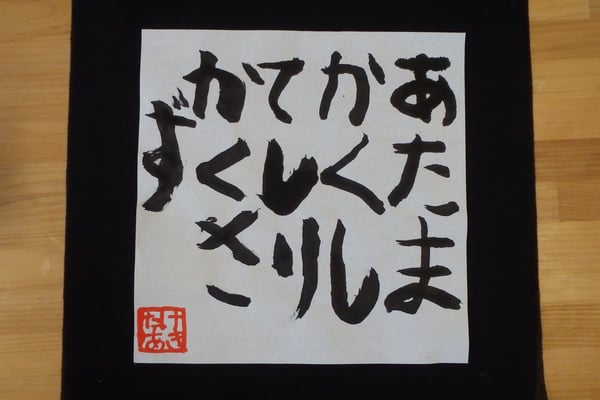 あたま
かくし
てしり
かくさ
ず